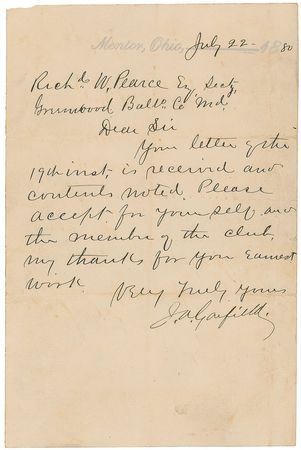 Mentor, Ohio, July 22 - 1880
Richd. W. Pearce Esq Secty,
Greenwood Balto. Co Md.
Dear Sir
Your letter of the
19th inst, is received and
contents noted. Please
accept for yourself and
the member of the club,
my thanks for your Earnest
work.
Very Truly Yours
J. A. Garfield.